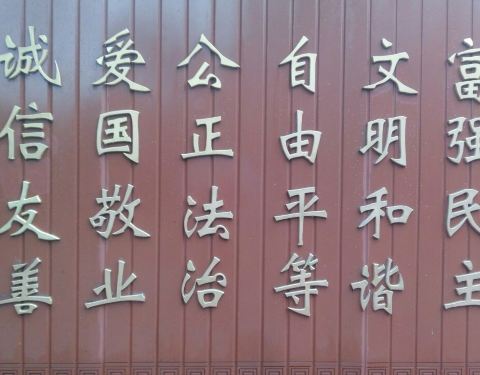 富强民主
文明和谐
自由平等
公正法治
爱国敬业
诚信友善